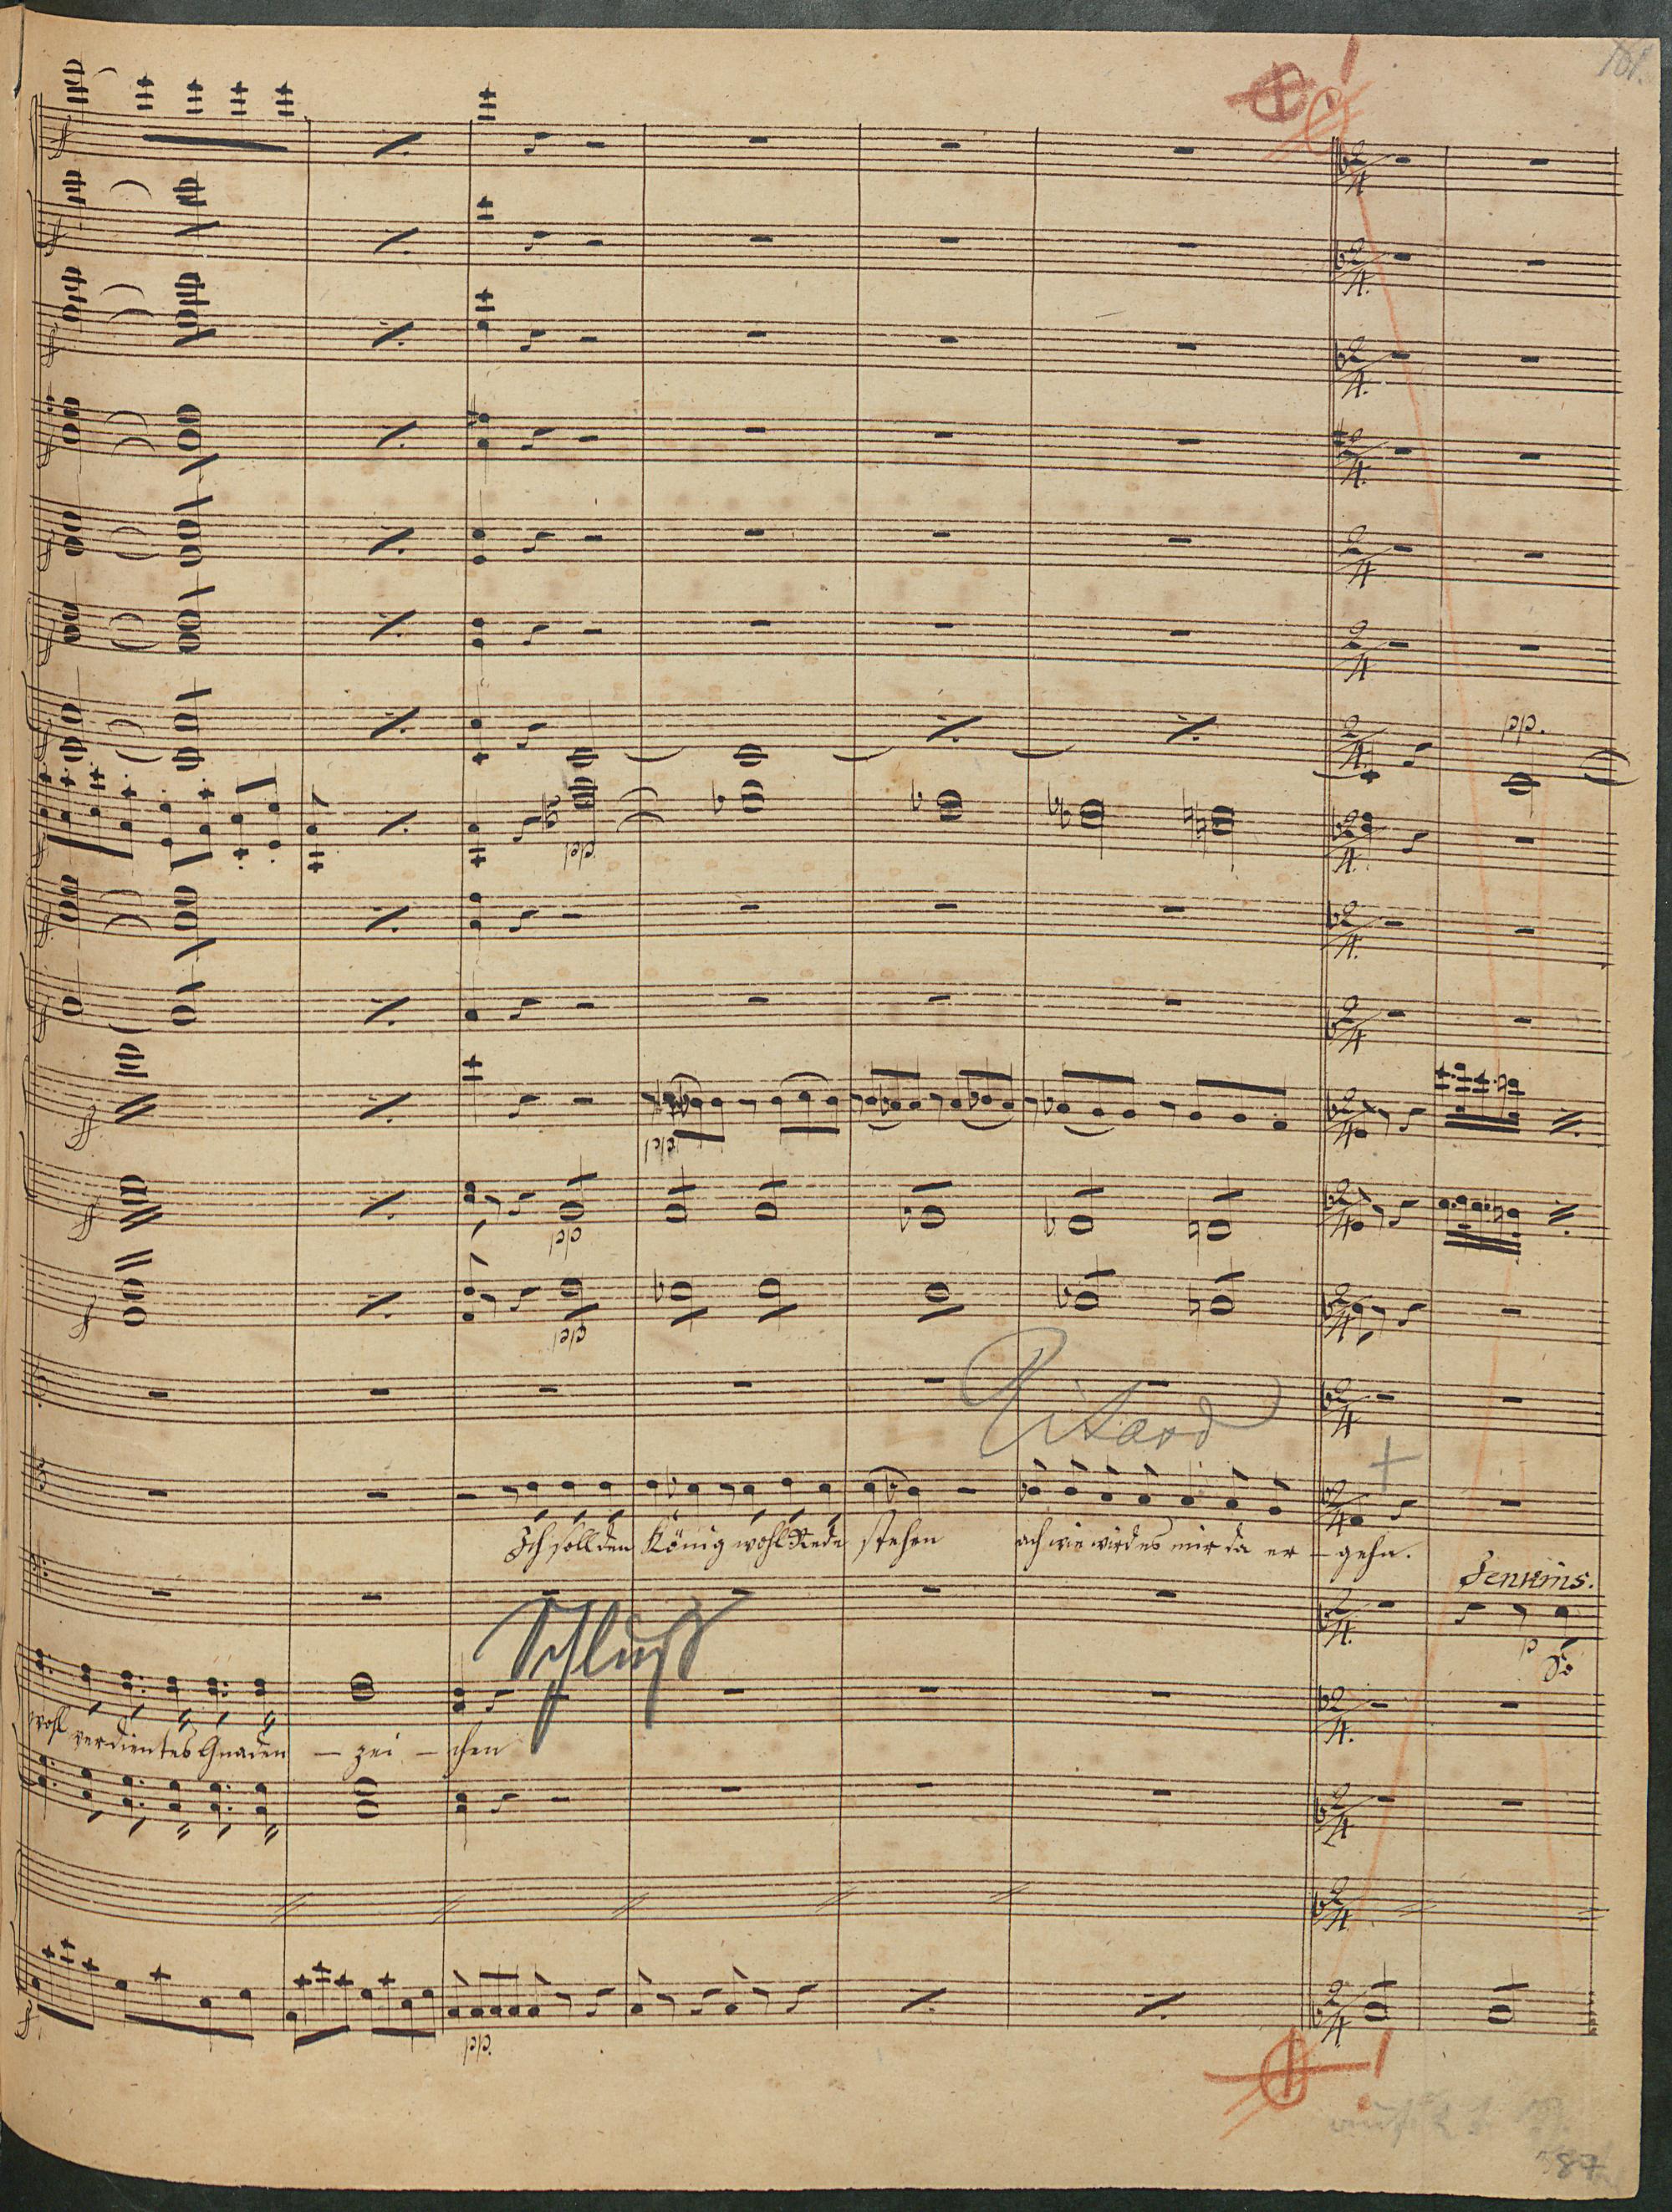 161.
pp.
pp
pp
pp
pp
Ritard
Ich soll den König wohl Rede stehen ach wie wird es mir da er - gehn.
Jenkins.
p
So
Schluß
wohl verdientes Gnaden - zei - chen
pp.
87